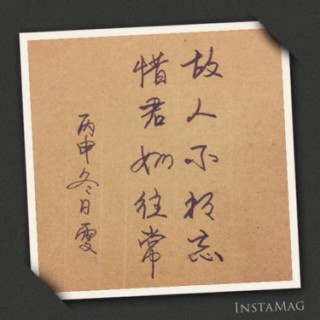 故人不相忘
惜君如往常
丙申冬日雯
INSTAMAG